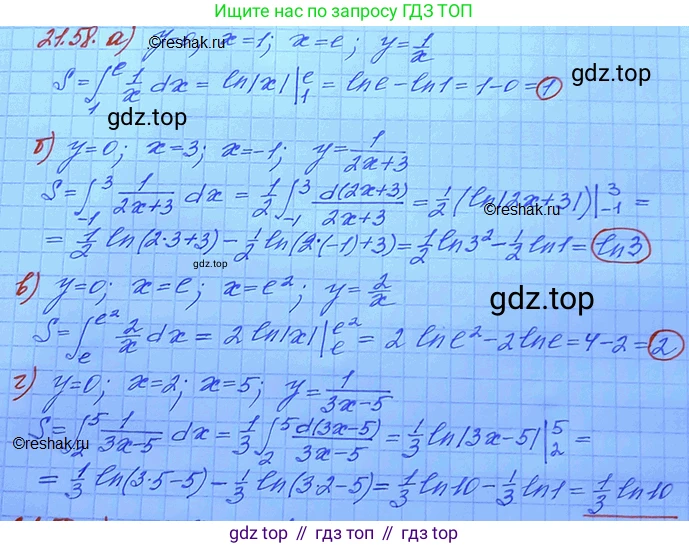 Ищите нас по запросу ГДЗ ТОП
21.58. а) y=0; x=1; x=e; y=1/x
©reshak.ru
gdz.top
S=∫₁ᵉ 1/x dx = ln|x| |₁ᵉ = lne-ln1=1-0=1
gdz.top
б) y=0; x=3; x=-1; y=1/(2x+3)
S=∫₋₁³ 1/(2x+3) dx = 1/2 ∫₋₁³ d(2x+3)/(2x+3) = 1/2 (ln|2x+3|)|₋₁³ =
©reshak.ru
= 1/2 ln(2·3+3) - 1/2 ln(2·(-1)+3) = 1/2 ln3² - 1/2 ln1 = ln3
gdz.top
в) y=0; x=e; x=e²; y=2/x
gdz.top
S=∫ₑ^(e²) 2/x dx = 2 ln|x| |ₑ^(e²) = 2 lne² - 2lne = 4-2=2
г) y=0; x=2; x=5; y=1/(3x-5)
gdz.top
©reshak.ru
S=∫₂⁵ 1/(3x-5) dx = 1/3 ∫₂⁵ d(3x-5)/(3x-5) = 1/3 ln|3x-5| |₂⁵ =
= 1/3 ln(3·5-5) - 1/3 ln(3·2-5) = 1/3 ln10 - 1/3 ln1 = 1/3 ln10
gdz.top // гдз.топ // гдз топ